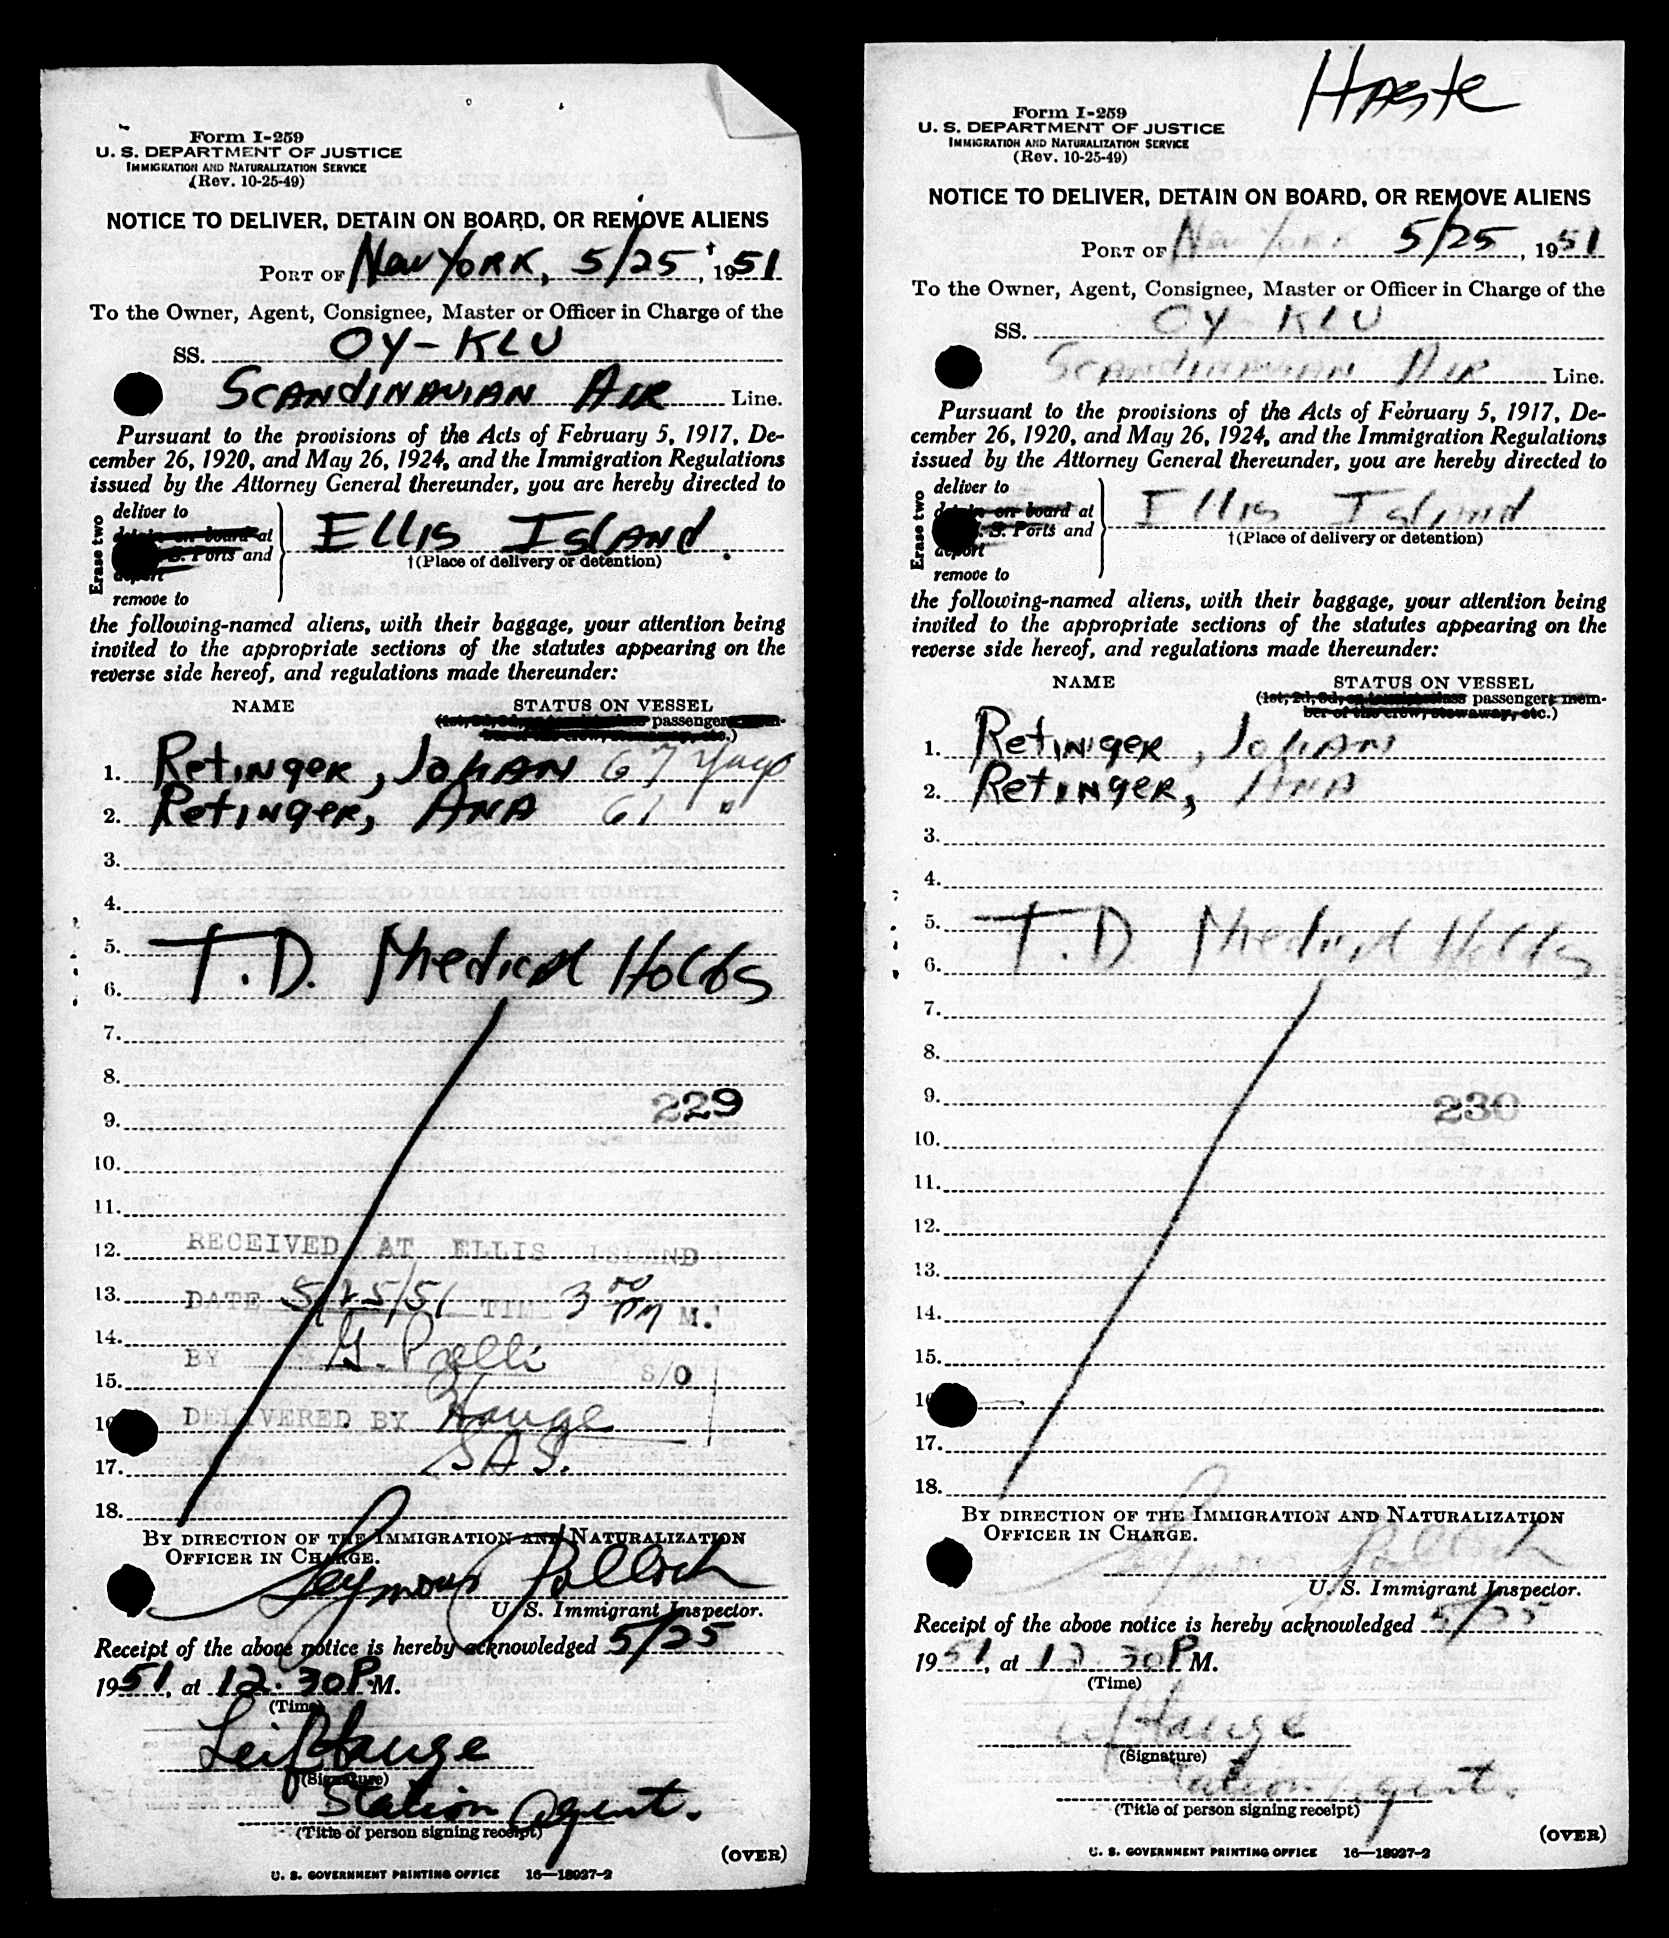 Form I-259
U. S. DEPARTMENT OF JUSTICE
IMMIGRATION AND NATURALIZATION SERVICE
(Rev. 10-25-49)
NOTICE TO DELIVER, DETAIN ON BOARD, OR REMOVE ALIENS
PORT OF New York, 5/25, 1951
To the Owner, Agent, Consignee, Master or Officer in Charge of the
SS. OY-KLU
SCANDINAVIAN AIR Line.
Pursuant to the provisions of the Acts of February 5, 1917, De-
cember 26, 1920, and May 26, 1924, and the Immigration Regulations
issued by the Attorney General thereunder, you are hereby directed to
Erase two
deliver to
detain on board at
S. Ports and
deport
remove to
Ellis Island.
†(Place of delivery or detention)
the following-named aliens, with their baggage, your attention being
invited to the appropriate sections of the statutes appearing on the
reverse side hereof, and regulations made thereunder:
NAME STATUS ON VESSEL
(1st, 2d, 3d, or tourist class passenger, mem-
ber of the crew, stowaway, etc.)
1. Retinger, Johan 67
2. Retinger, ANA 61 "
3.
4.
5. T.D. Medical Holds
6.
7.
8.
9. 229
10.
11.
12. RECEIVED AT ELLIS ISLAND
13. DATE 5/25/51 TIME 3 00 PM M.
14.
BY G. S/O
15.
16 DELIVERED BY Hauge
17. SAS.
18.
BY DIRECTION OF THE IMMIGRATION AND NATURALIZATION
OFFICER IN CHARGE.
Seymour Pollock
U. S. Immigrant Inspector.
Receipt of the above notice is hereby acknowledged 5/25
1951, at 12.30 P.M.
(Time)
Leif Hauge
(Signature)
Station Agent.
(Title of person signing receipt)
(OVER)
U. S. GOVERNMENT PRINTING OFFICE 16—18937-2
Haste
Form I-259
U. S. DEPARTMENT OF JUSTICE
IMMIGRATION AND NATURALIZATION SERVICE
(Rev. 10-25-49)
NOTICE TO DELIVER, DETAIN ON BOARD, OR REMOVE ALIENS
PORT OF New York 5/25, 1951
To the Owner, Agent, Consignee, Master or Officer in Charge of the
SS. OY-KLU
SCANDINAVIAN AIR Line.
Pursuant to the provisions of the Acts of February 5, 1917, De-
cember 26, 1920, and May 26, 1924, and the Immigration Regulations
issued by the Attorney General thereunder, you are hereby directed to
Erase two
deliver to
detain on board at
S. Ports and
deport
remove to
Ellis Island
†(Place of delivery or detention)
the following-named aliens, with their baggage, your attention being
invited to the appropriate sections of the statutes appearing on the
reverse side hereof, and regulations made thereunder:
NAME STATUS ON VESSEL
(1st, 2d, 3d, or tourist class passenger, mem-
ber of the crew, stowaway, etc.)
1. Retinger, Johan
2. Retinger, ANA
3.
4.
5. T.D. Medical Holds
6.
7.
8.
9. 230
10.
11.
12.
13.
14.
15.
16
17.
18.
BY DIRECTION OF THE IMMIGRATION AND NATURALIZATION
OFFICER IN CHARGE.
Seymour Pollock
U. S. Immigrant Inspector.
Receipt of the above notice is hereby acknowledged 5/25
1951, at 12.30 P M.
(Time)
Leif Hauge
(Signature)
Station Agent.
(Title of person signing receipt)
(OVER)
U. S. GOVERNMENT PRINTING OFFICE 16—18937-2